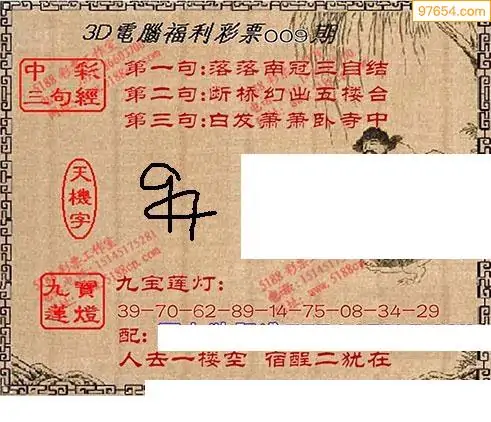 97654.com
3D電腦福利彩票009期
中彩
三句經
第一句:落落南冠三自结
第二句:断桥幻出五楼台
第三句:白发萧萧卧寺中
天機字
97
九寶
蓮燈
九宝莲灯:
39-70-62-89-14-75-08-34-29
配:
人去一楼空 宿醒二犹在
5188 彩票工作室
15145175281